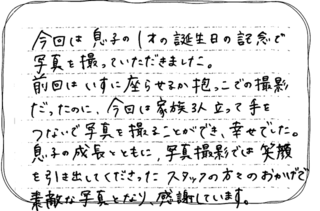 今回は息子の1才の誕生日の記念で
写真を撮っていただきました。
前回はいすに座らせるか抱っこでの撮影
だったのに、今回は家族3人立って手を
つないで写真を撮ることができ、幸せでした。
息子の成長とともに、写真撮影では笑顔
を引き出してくださったスタッフの方々のおかげで
素敵な写真となり、感謝しています。